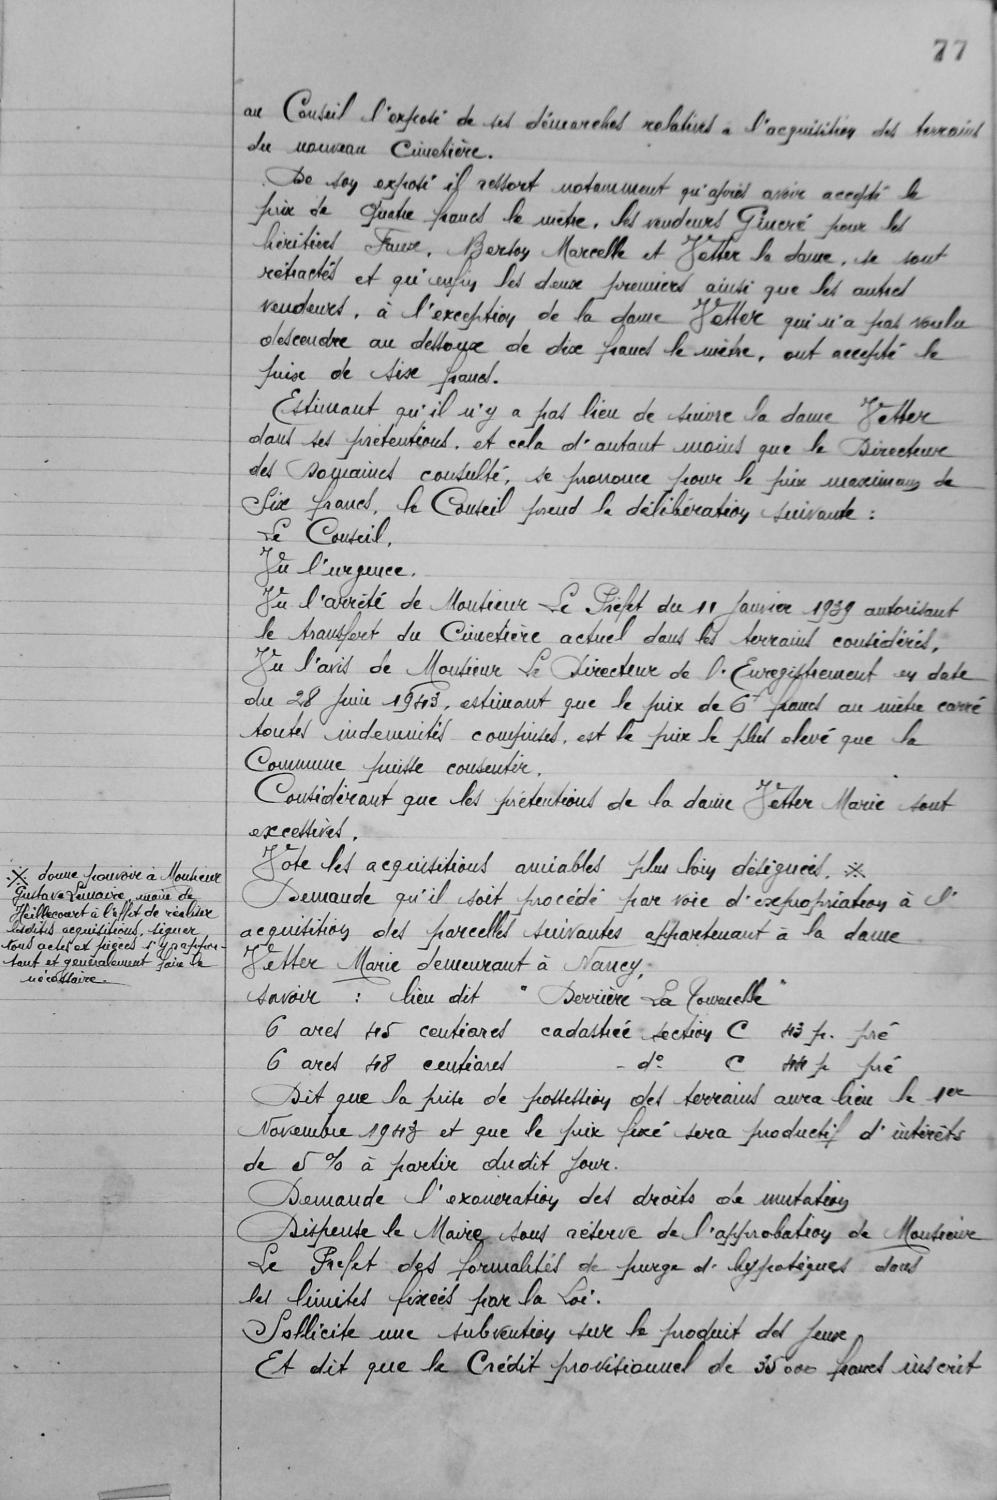 77
au Conseil l'exposé de ses démarches relatives à l'acquisition des terrains
du nouveau Cimetière.
De son exposé il ressort notamment qu'après avoir accepté le
prix de quatre francs le mètre, les vendeurs Gineré pour les
héritiers Faux, Berson Marcelle et Vetter la dame, se sont
rétractés et qu'enfin les deux premiers ainsi que les autres
vendeurs, à l'exception de la dame Vetter qui n'a pas voulu
descendre au dessous de dix francs le mètre, ont accepté le
prix de six francs.
Estimant qu'il n'y a pas lieu de suivre la dame Vetter
dans ses prétentions, et cela d'autant moins que le Directeur
des Domaines consulté, se prononce pour le prix maximum de
Six francs, le Conseil prend la délibération suivante :
Le Conseil,
Vu l'urgence,
Vu l'arrêté de Monsieur Le Préfet du 11 Janvier 1939 autorisant
le transfert du Cimetière actuel dans les terrains considérés,
Vu l'avis de Monsieur Le Directeur de l'Enregistrement en date
du 28 Juin 1943, estimant que le prix de 6 francs au mètre carré
toutes indemnités comprises, est le prix le plus élevé que la
Commune puisse consentir,
Considérant que les prétentions de la dame Vetter Marie sont
excessives,
Vote les acquisitions amiables plus loin désignées, ※
Demande qu'il soit procédé par voie d'expropriation à l'
acquisition des parcelles suivantes appartenant à la dame
Vetter Marie demeurant à Nancy,
savoir : lieu dit " Derrière La Tournelle "
6 ares 45 centiares cadastrée section C 43 p. pré
6 ares 48 centiares - d° C 44 p pré
Dit que la prise de possession des terrains aura lieu le 1er
Novembre 1943 et que le prix fixé sera productif d'intérêts
de 5 % à partir dudit jour.
Demande l'exonération des droits de mutation
Dispense le Maire, sous réserve de l'approbation de Monsieur
Le Préfet des formalités de purge d'hypotèques dans
les limites fixées par la Loi.
Sollicite une subvention sur le produit des jeux
Et dit que le Crédit provisionnel de 35000 francs inscrit
※ donne pouvoir à Monsieur
Gustave Lemoire, maire de
Heillecourt à l'effet de réaliser
lesdites acquisitions, signer
tous actes et pièces s'y rappor-
tant et généralement faire le
nécessaire.